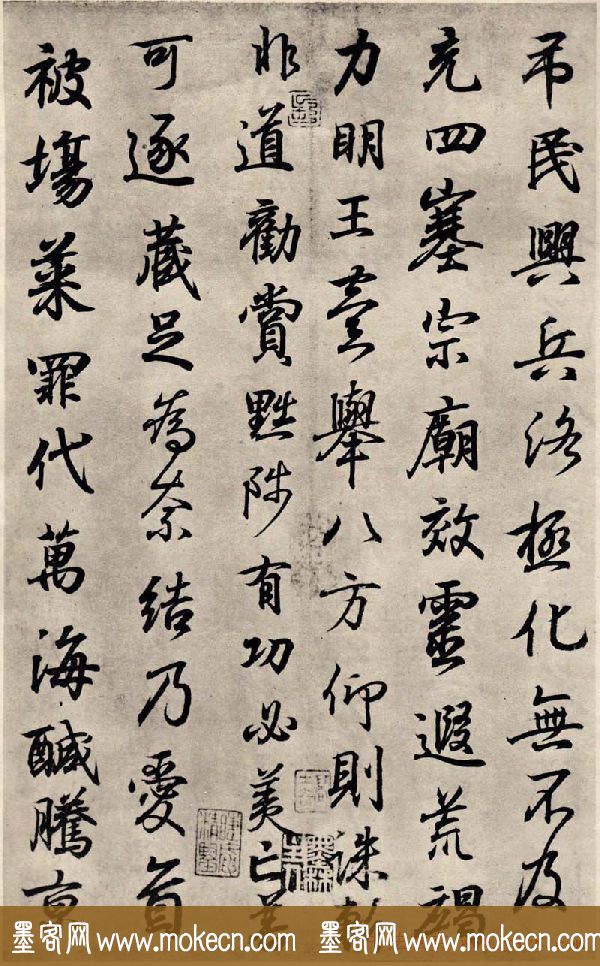 吊民興兵洛極化無不及
充四塞宗廟效靈遐荒竭
力明王壹舉八方仰則誅
非道勸賞黜陟有功必美亡
可逐藏足為奈結乃愛育
被場菜罪代萬海鹹騰
墨客网 www.mokecn.com 墨客网 www.mokecn.com